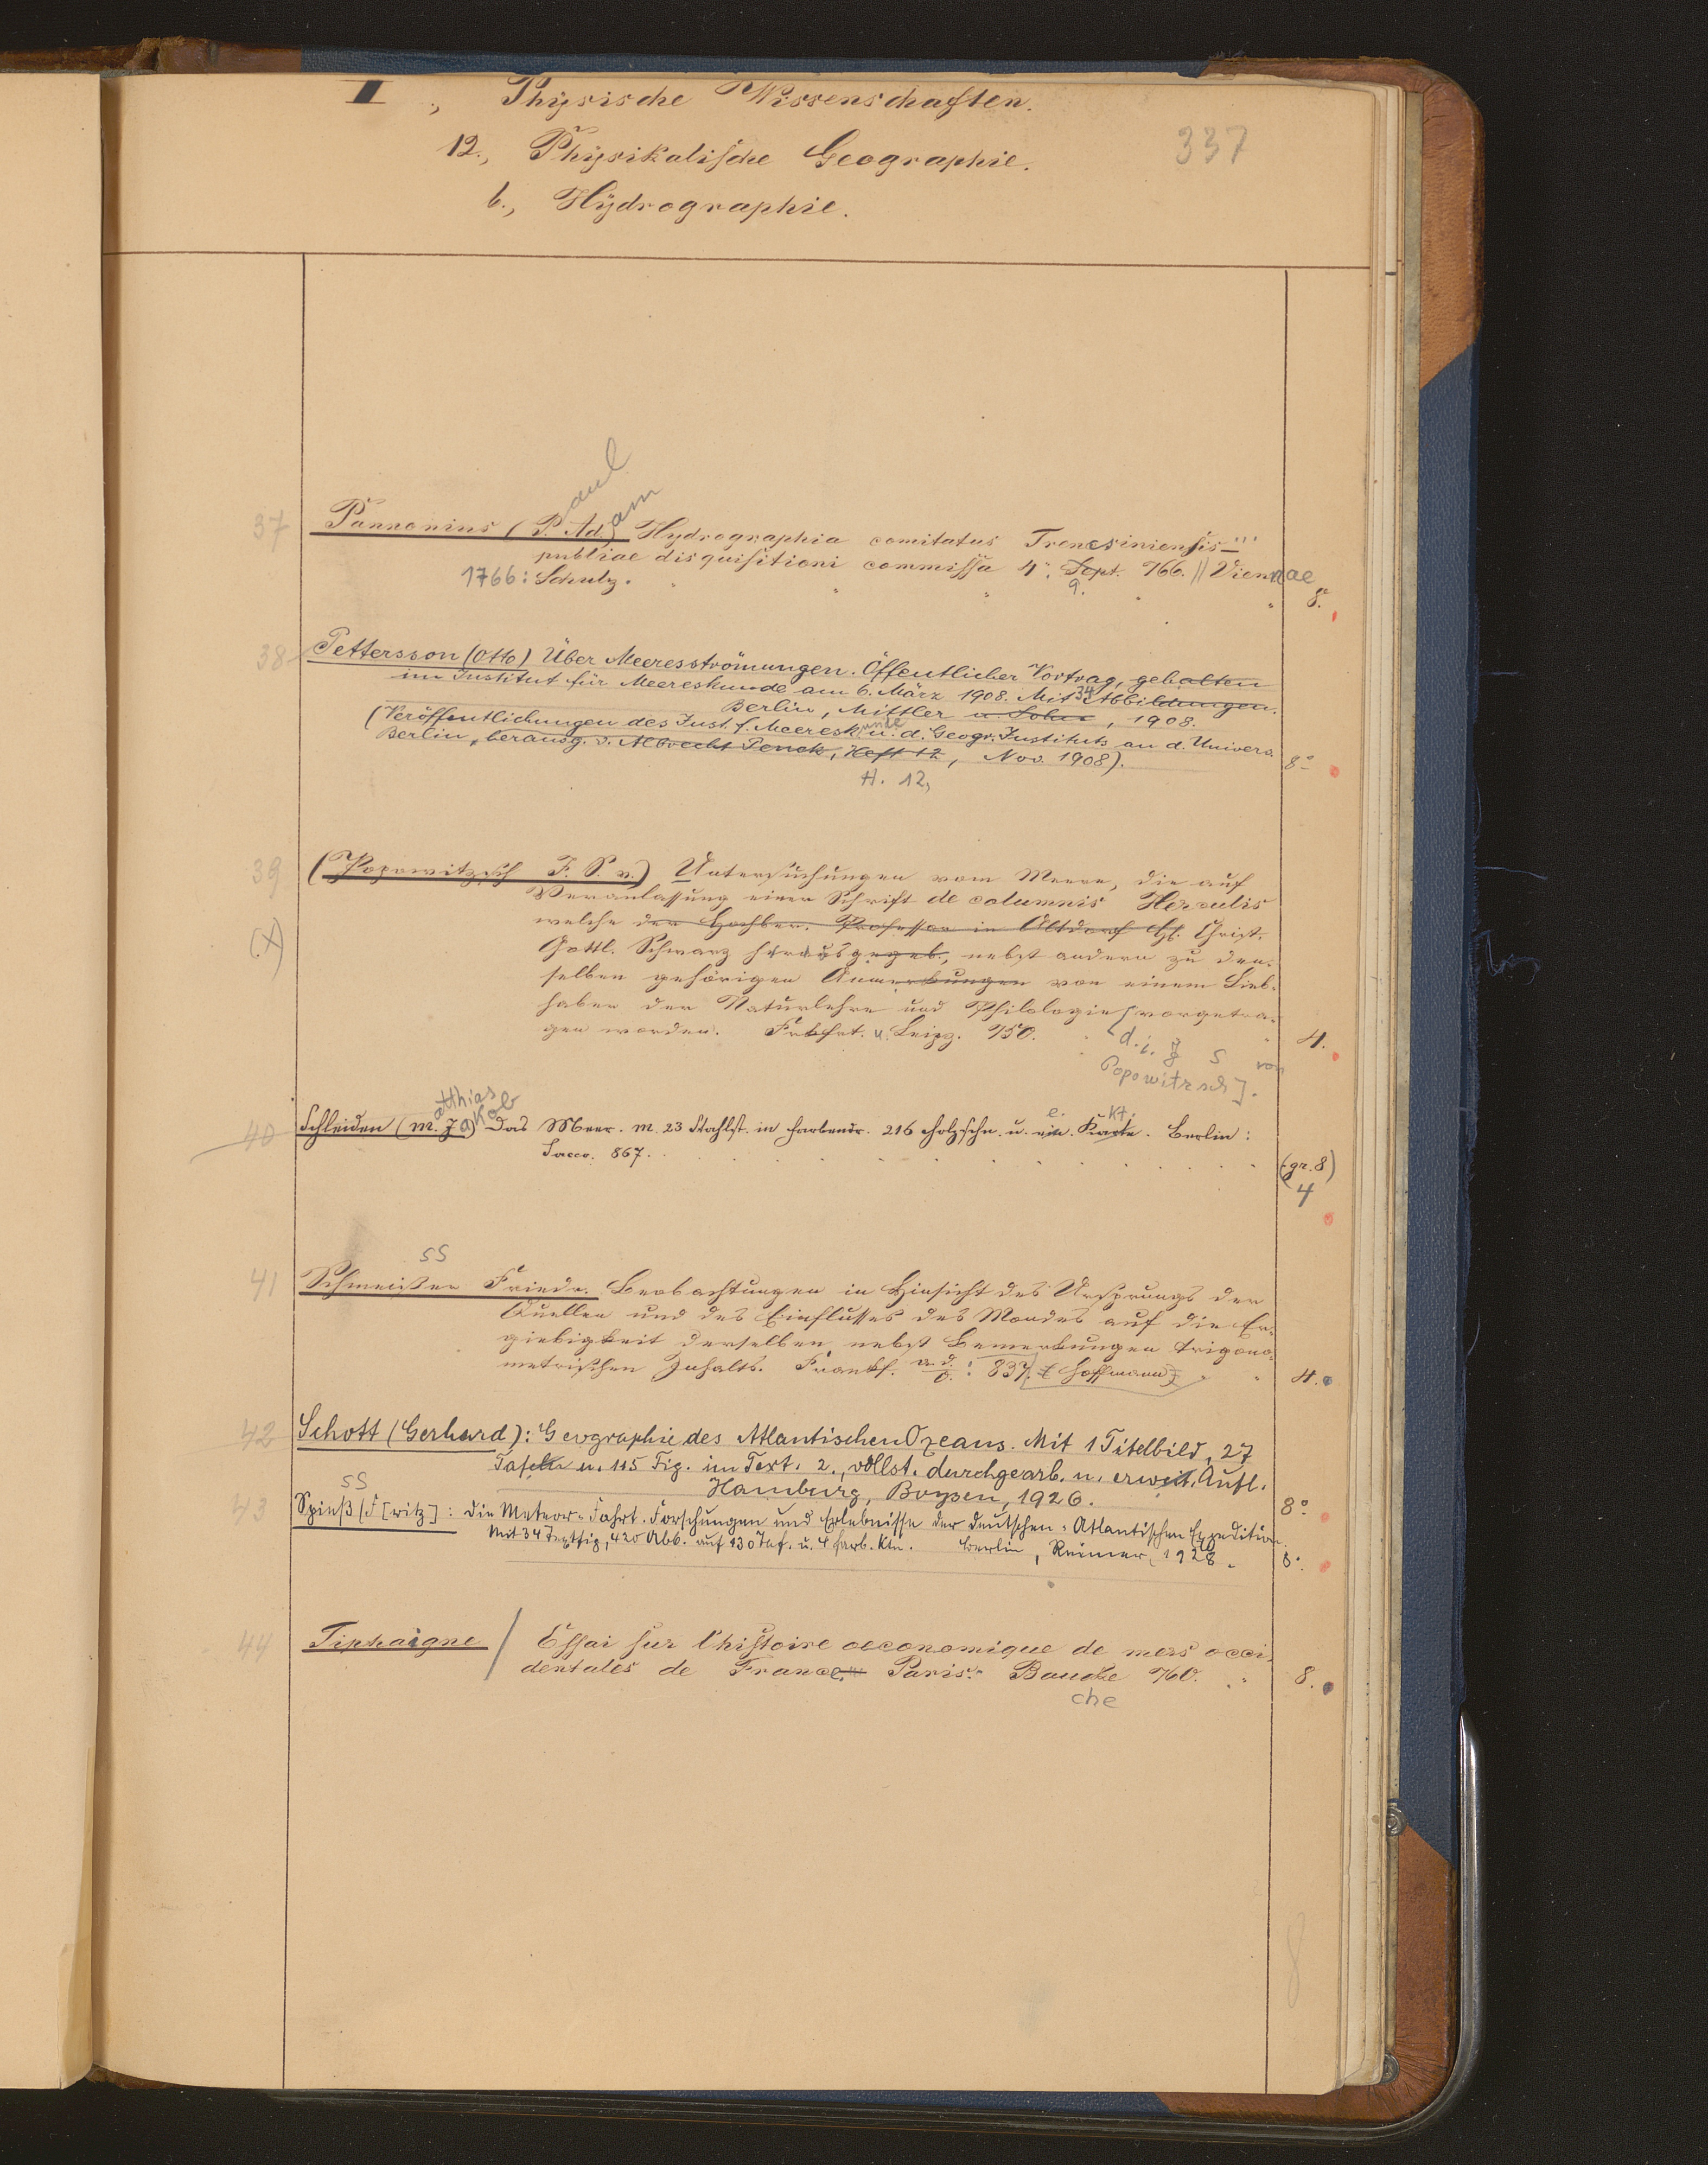 I., Physische Wissenschaften.
337
12., Physikalische Geographie.
b., Hydrographie.
37 Pannonius (P.aul Ad.am Hydrographia comitatus Trencsiniensis
publiae disquisitioni commissa 4°. Sept. 766. || Viennae
1766: Schulz. 9. 8°.
38 Pettersson (Otto) Über Meeresströmungen. Öffentlicher Vortrag, gehalten
im Institut für Meereskunde am 6. März 1908. Mit 34 Abbildungen.
Berlin, Mittler u. Sohn, 1908.
(Veröffentlichungen des Inst. f. Meereskunde u. d. Geogr. Instituts an d. Univers.
Berlin, herausg. v. Albrecht Penck, Heft 12, Nov. 1908). 8°
H. 12,
39 (Popowitzsch J. S. v.) Untersuchungen vom Meere, die auf
Veranlassung einer Schrift de columnis Herculis
(X) welche der Hochber. Professor in Altdorf H. Christ.
Gottl. Schwarz herausgegeb., nebst andern zu den-
selben gehörigen Anmerkungen von einem Lieb-
haber der Naturlehre und Philologie vorgetra-
gen worden. Frkfrt. u. Leipz. 750. 4.
[d. i. J S von
Popowitzsch].
40 Schleiden (M.atthias Jakob) Das Meer. m. 23 Stahlst. in Farbendr. 216 Holzschn. u. e. Karte. Kt. Berlin:
Sacco. 867. (gr. 8)
4
ss
41 Schmeißer Friedr. Beobachtungen in Hinsicht des Ursprungs der
Quellen und des Einflusses des Mondes auf die Er-
giebigkeit derselben, nebst Bemerkungen trigono-
metrischen Inhalts. Frankf. a. d. O.: 837. [Hoffmann] 4.
42 Schott (Gerhard): Geographie des Atlantischen Ozeans. Mit 1 Titelbild, 27
Tafeln u. 115 Fig. im Text. 2., vollst. durchgearb. u. erweit. Aufl.
Hamburg, Boysen, 1926. 8°
ss
43 Spieß (F[ritz]: Die Meteor-Fahrt. Forschungen und Erlebnisse der deutschen Atlantischen Expedition.
Mit 34 Textfig, 420 Abb. auf 130 Taf. u. 4 farb. Ktn. Berlin, Reimer, 1928. 8°.
44 Tiphaigne / Essai sur l'histoire oeconomique de mers occi-
dentales de France. Paris: Bauche 760. 8.
che
8